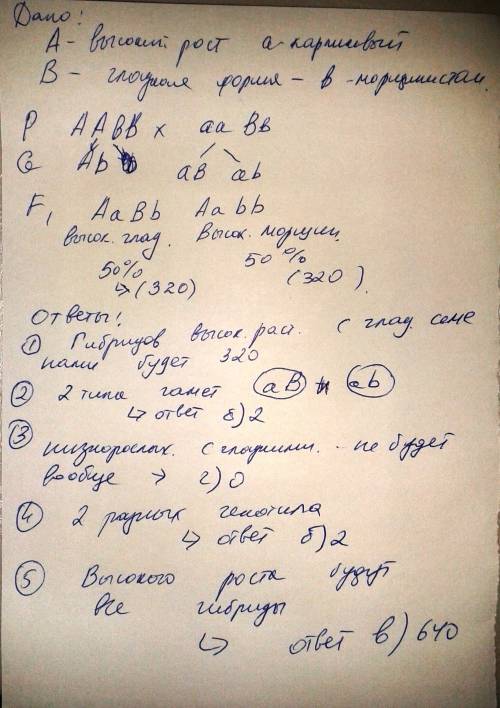 Дано:
А - высокий рост а - карликовый
В - гладкая форма - в - морщинистая
P AABB x aaBb
G Ab aB ab
F1 AaBb Aabb
высок. глад. Высок. морщин.
50% 50%
↳ (320) (320)
Ответы:
① Гибридов высок. раст. с глад. семе
нами будет 320
② 2 типа гамет аВ и ab
↳ ответ б) 2
③ низкорослых. с гладкими. - не будет
вообще → г) 0
④ 2 разных генотипа
↳ ответ б) 2
⑤ Высокого роста будут
все гибриды
↳ ответ в) 640